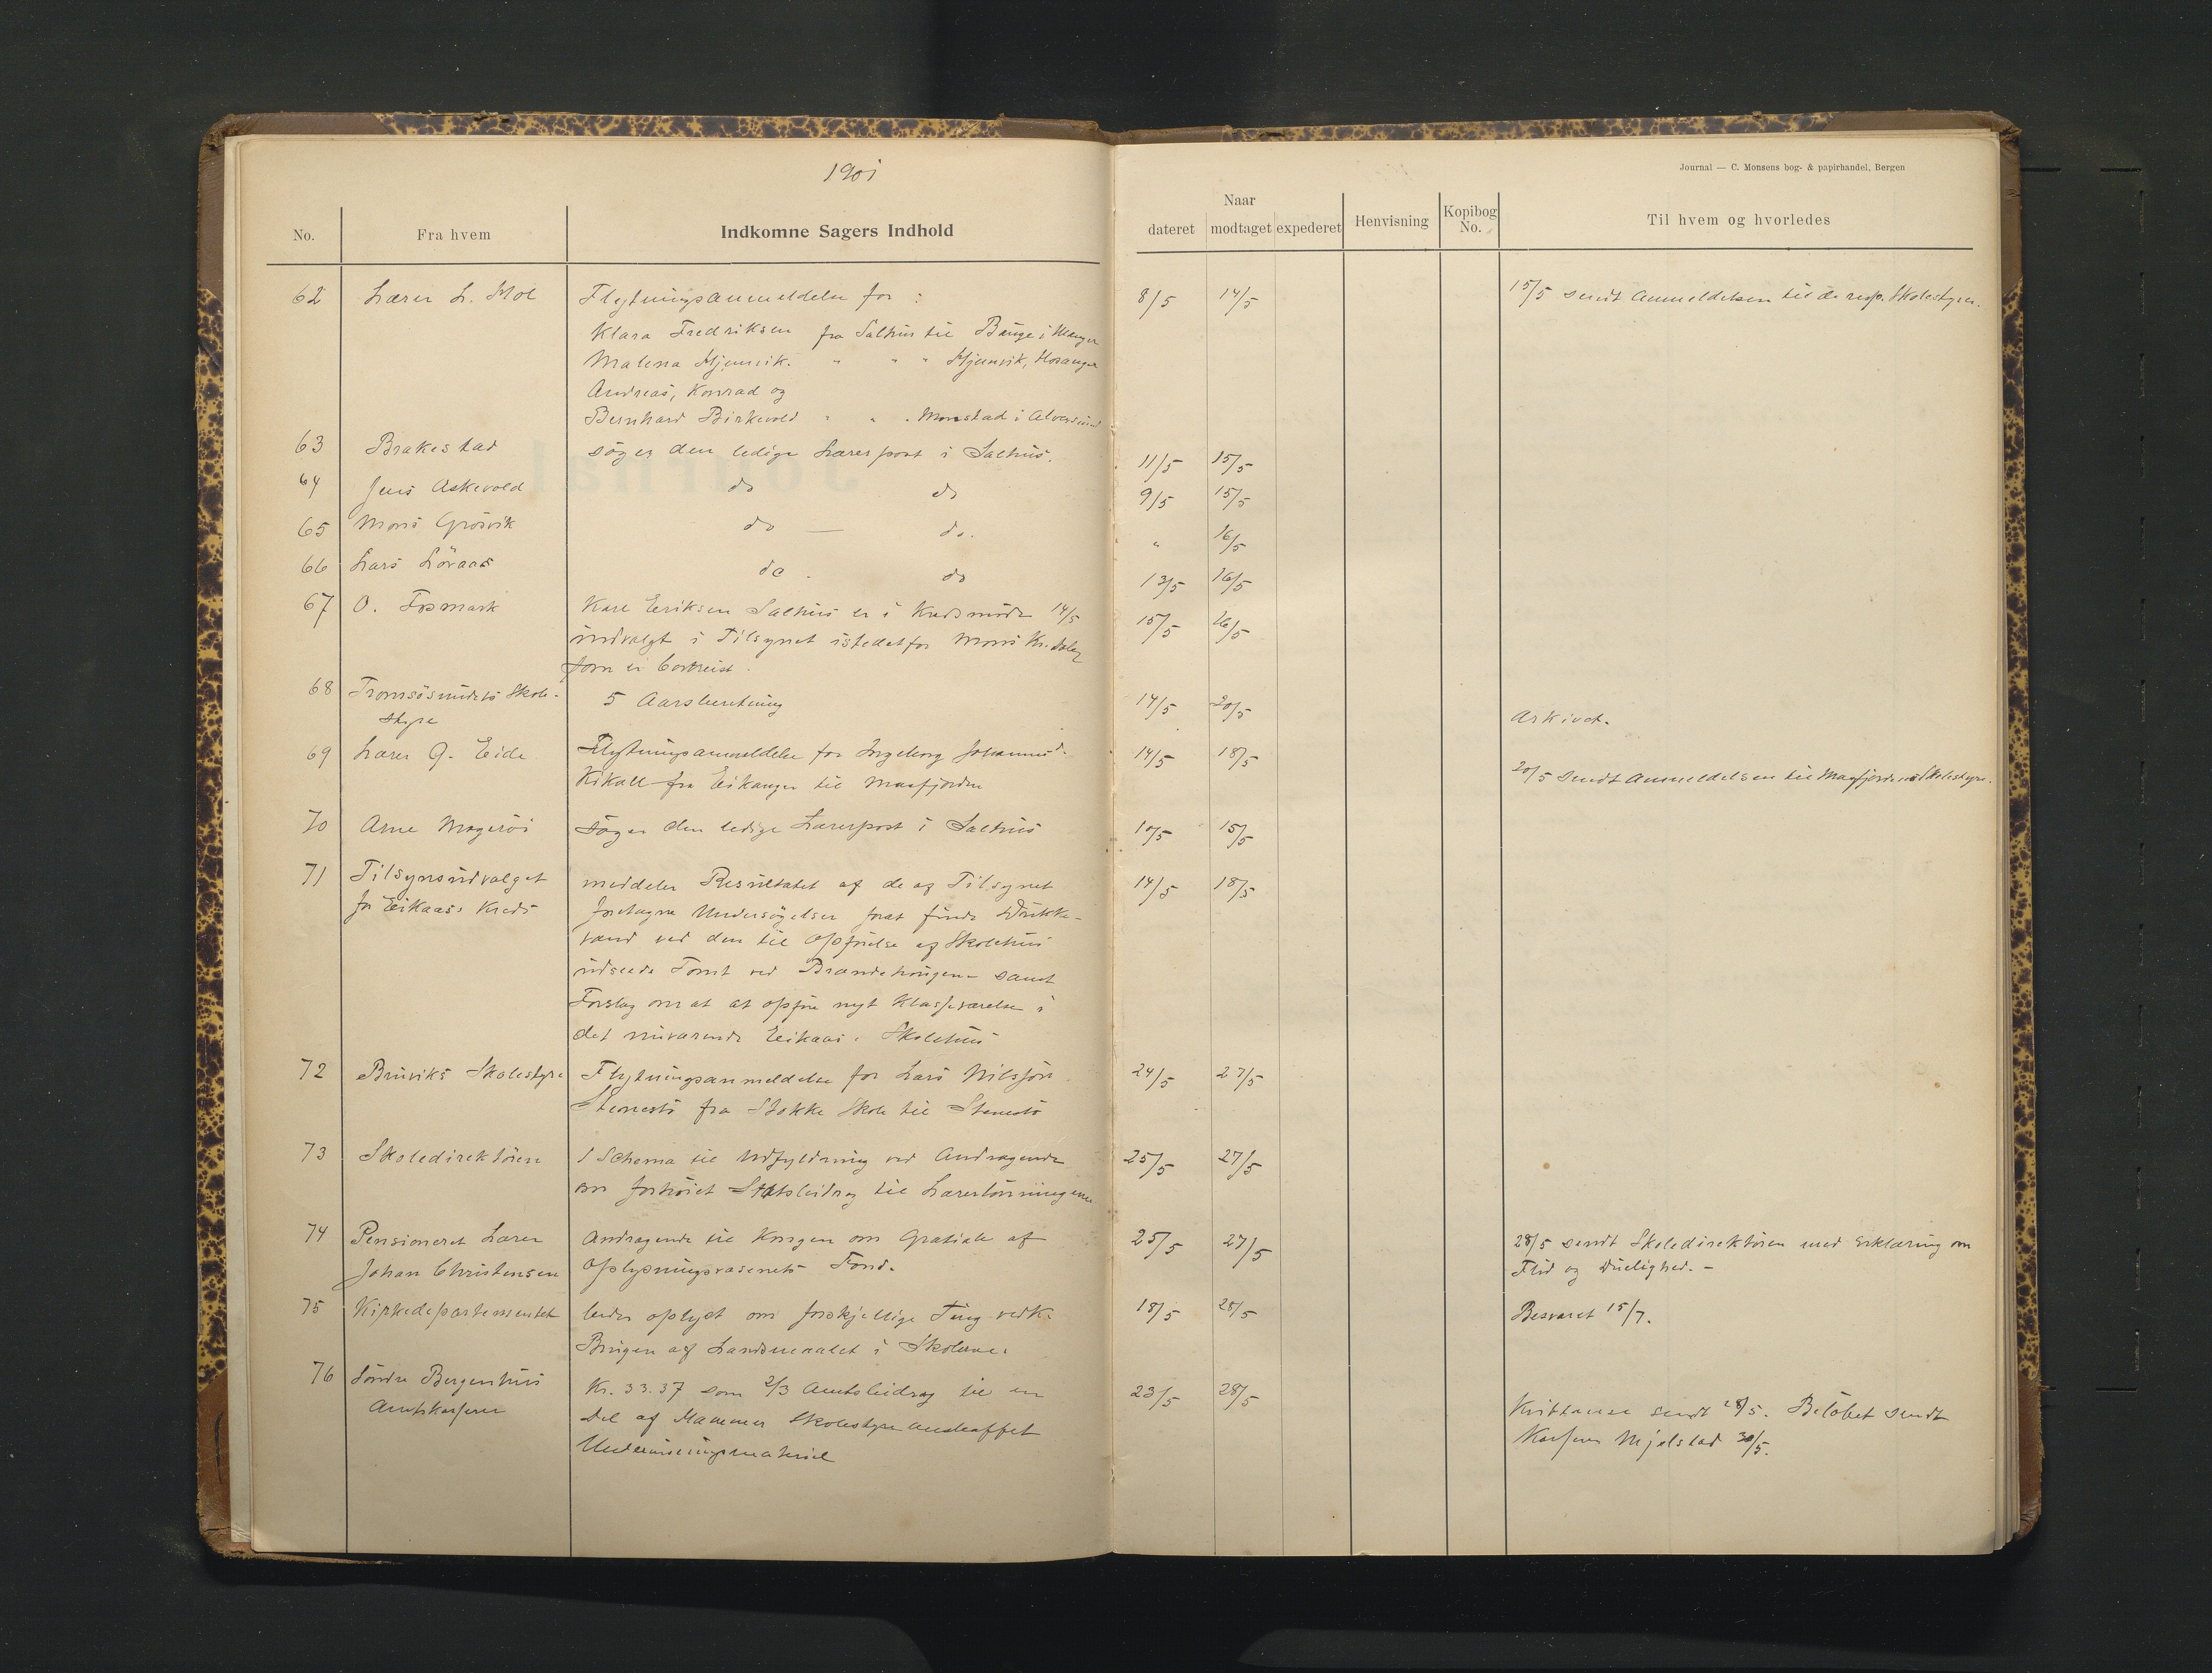 1901
Journal — C. Monsens bog- & papirhandel, Bergen
No. Fra hvem Indkomne Sagers Indhold
Naar
dateret modtaget expederet Henvisning Kopibog No. Til hvem og hvorledes
62 Lærer L. Flytningsanmeldelse for : 8/5 14/5 15/5 sendt Anmeldelsen til de resp. Skolestyrer.
Klara Fredriksen fra Salhus til Bauge i Manger
Malena Hjemvik. " " " Hjemvik, Hosanger
Andreas, Konrad og
Bernhard Birkevold " " " Monstad i Alversund
63 Brakestad søger den ledige Lærerpost i Salhus. 11/5 15/5
64 Jens Askevold do do 9/5 15/5
65 Mons Grøsvik do — do. " 16/5
66 Lars Løvaas do . do 13/5 16/5
67 O. Karl Eriksen Salhus er i Kredsmøde 14/5 15/5 16/5
indvalgt i Tilsynet istedetfor Mons Kr.
som er bortreist.
68 Tromsøsundets Skole- 5 Aarsberetning 14/5 20/5 Arkivet.
styre
69 Lærer G. Eide Flytningsanmeldelse for Ingeborg Johannesd. 14/5 18/5
Kikall fra Eikanger til Masfjorden 20/5 sendt Anmeldelsen til Masfjordens Skolestyre.
70 Arne Magerøi søger den ledige Lærerpost i Salhus 10/5 15/5
71 Tilsynsudvalget meddeler Resultatet af de af Tilsynet 14/5 18/5
for Eikaas Kreds foretagne Undersøgelser forat finde Drikke-
vand ved den til Opførelse af Skolehus
udseede Tomt ved Brandehougene samt
Forslag om at at opføre nyt Klasseværelse i
det nuværende Eikaas Skolehus
72 Bruviks Skolestyre Flytningsanmeldelse for Lars Nilssøn 24/5 27/5
Stenestø fra Stokke Skole til Stenestø
73 Skoledirektøren 1 Schema til Udfyldning ved Andragende 25/5 27/5
om forhøiet Statsbidrag til Lærerlønningerne
74 Pensioneret Lærer Andragende til Kongen om Gratiale af 25/5 27/5 28/5 sendt Skoledirektøren med Erklæring om
Johan Christensen Oplysningsvæsenets Fond. Flid og Duelighed. —
75 Kirkedepartementet beder oplyst om forskjellige Ting vedk. 18/5 28/5 Besvaret 15/7.
Brugen af Landsmaalet i Skolerne.
76 Søndre Bergenhus Kr. 33.37 som 2/3 Amtsbidrag til en 23/5 28/5 Kvittance sendt 28/5. Beløbet sendt
Amtskasserer Del af Hammer Skolestyre anskaffet Kasserer Mjelstad 30/5.
Undervisningsmateriel